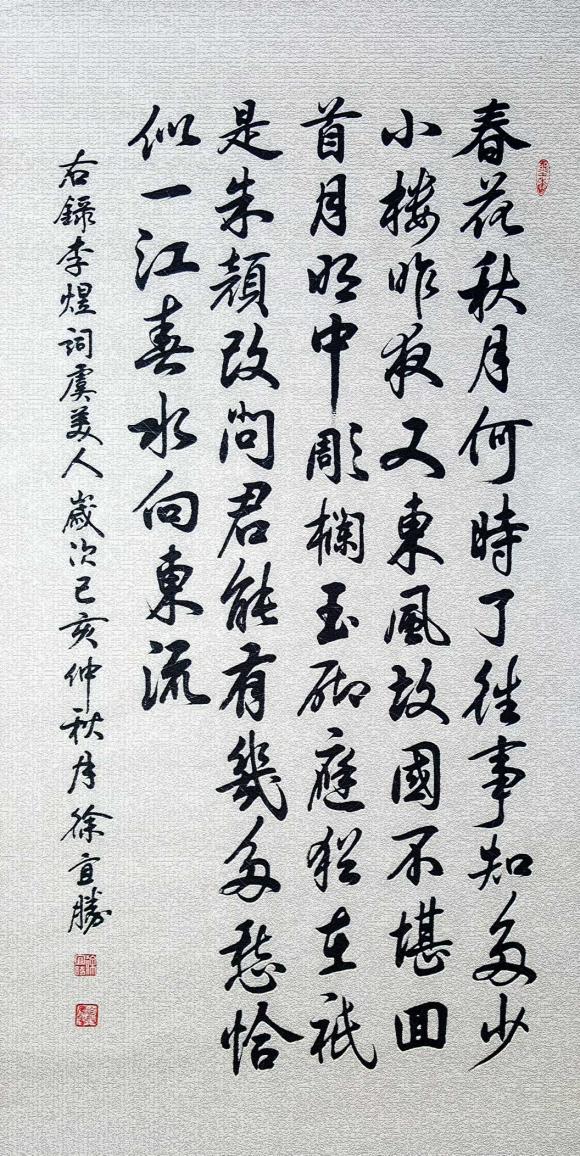 春花秋月何時了往事知多少
小樓昨夜又東風故國不堪回
首月明中彫欄玉砌應猶在祇
是朱顏改問君能有幾多愁恰
似一江春水向東流
右錄李煜詞虞美人歲次己亥仲秋月徐宜勝